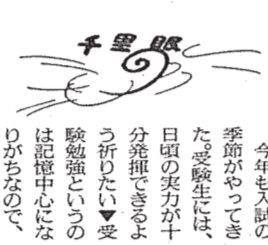 千里眼
今年も入試の
季節がやってき
た。受験生には、
日頃の実力が十
分発揮できるよ
う祈りたい▼受
験勉強というの
は記憶中心にな
りがちなので、